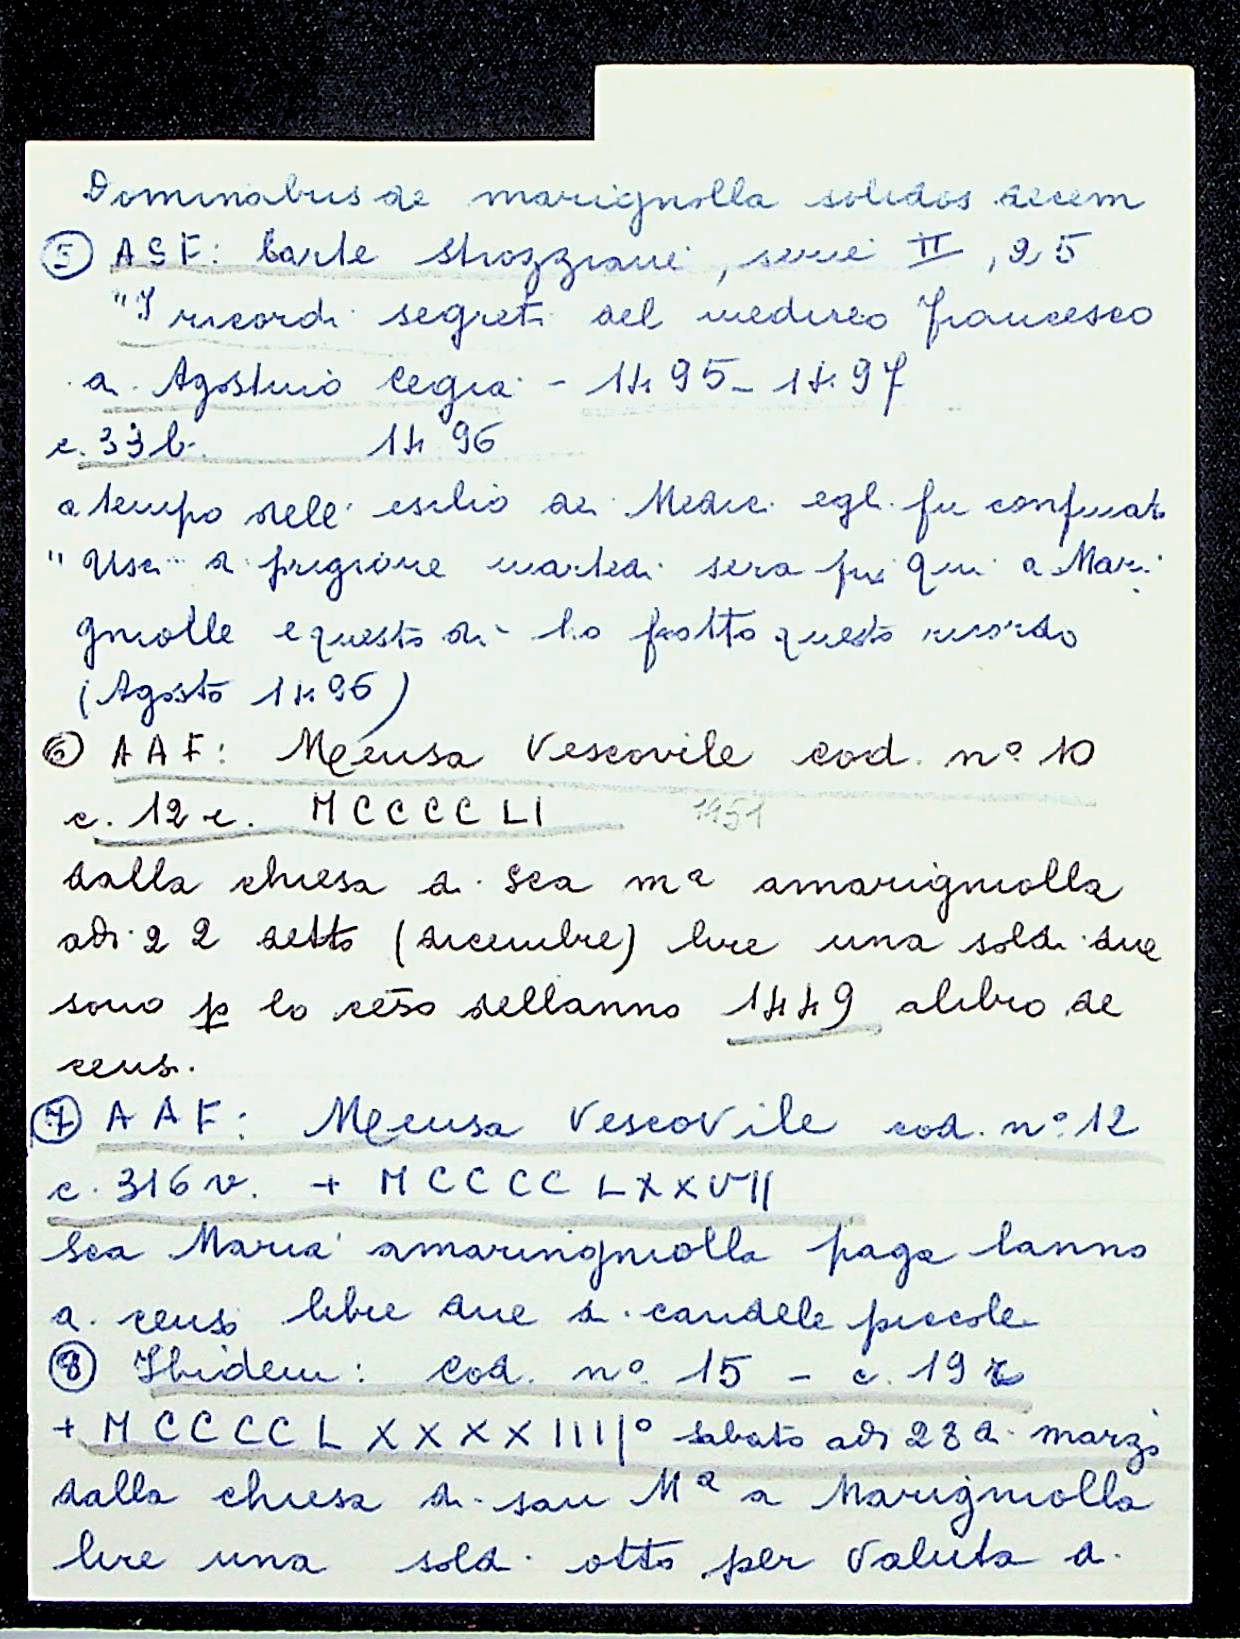 Dominabus de marignolla solidos decem
⑤ ASF: Carte Strozziane, serie II, 25
"I ricordi segreti del mediceo Francesco
di Agostino Cegia - 1495-1497
c. 33 b. 1496
a tempo dell'esilio dei Medici egli fu confinato
"Usci di prigione martedi sera fui qui a Mari
gniolle e questo di ho fatto questo ricordo
(Agosto 1496)
⑥ AAF: Mensa Vescovile cod. nº 10
c. 12 r. MCCCCLI 1451
dalla chiesa di Sca mª amarigniolla
adi 22 detto (dicembre) lire una soldi due
sono p lo céso dellanno 1449 alibro de
censi.
⑦ AAF: Mensa Vescovile cod. nº 12
c. 316 v. + MCCCCLXXVII
Sca Maria amaringniolla paga lanno
di censo libre due di candele piccole
⑧ Ibidem: cod. nº 15 - c. 19 r
+ MCCCCLXXXXIIIIº sabato adi 28 di marzo
dalla chiesa di san Mª a Marigniolla
lire una soldi otto per valuta di